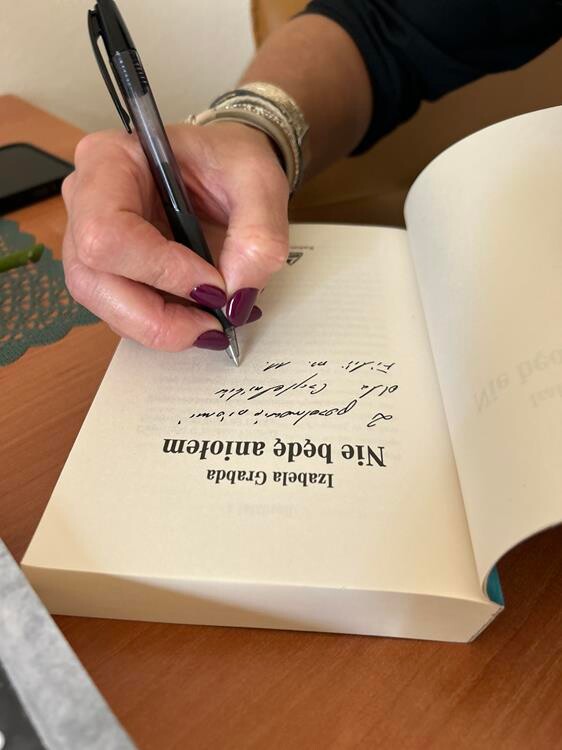 Izabela Grabda
Nie będę aniołem
Z pozdrowieniami
dla Czytelników
Filii nr 11.
Nie będ